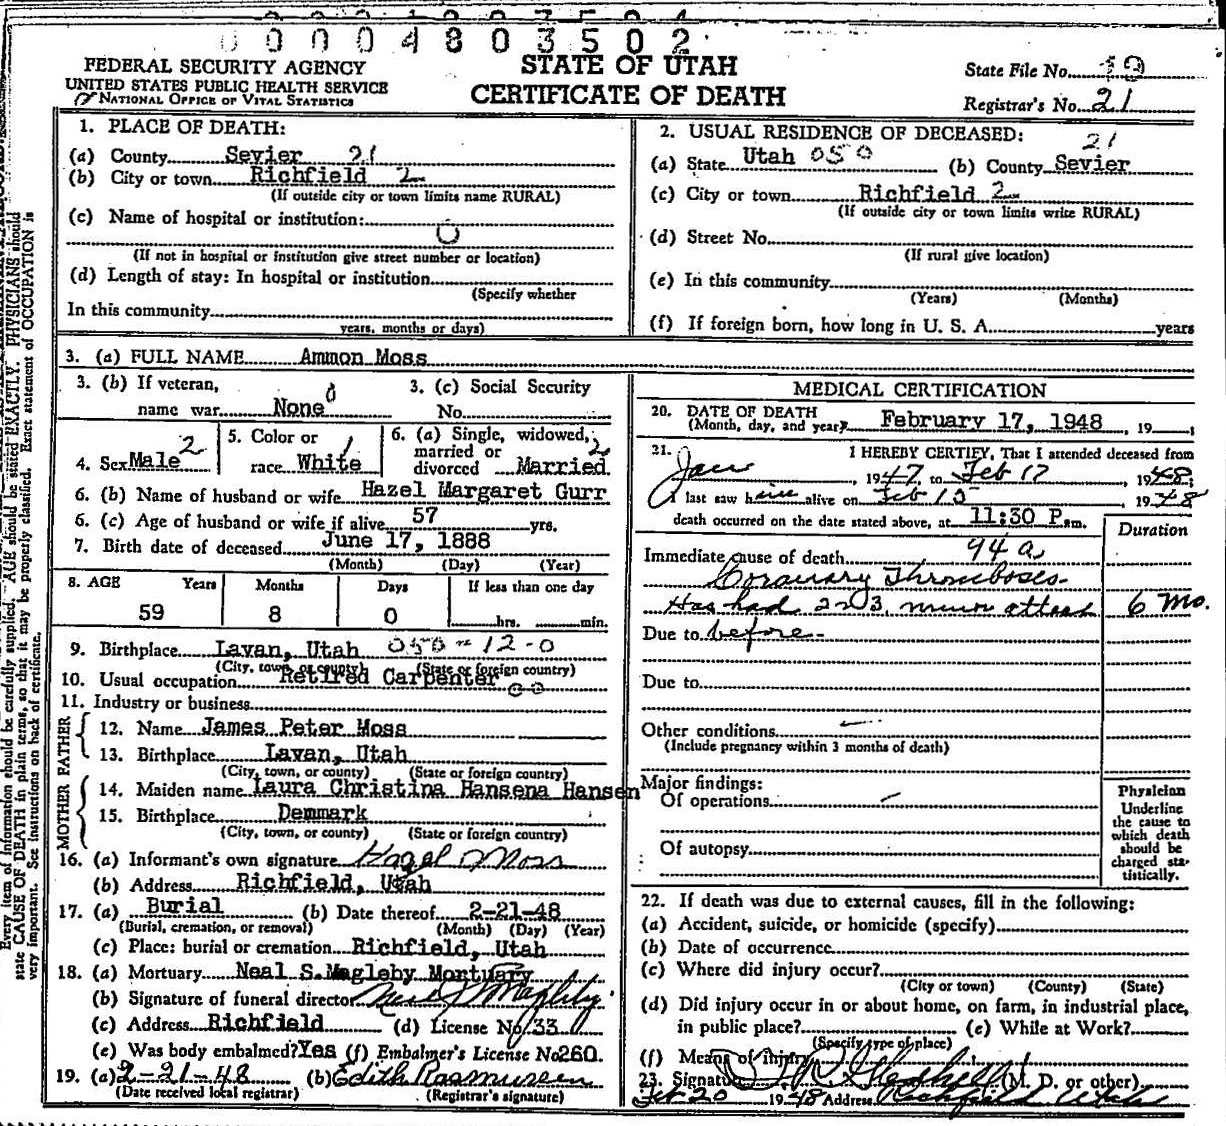 0000480 3502
FEDERAL SECURITY AGENCY
UNITED STATES PUBLIC HEALTH SERVICE
NATIONAL OFFICE OF VITAL STATISTICS
STATE OF UTAH
CERTIFICATE OF DEATH
State File No. 19
Registrar's No. 21
1. PLACE OF DEATH:
(a) County Sevier 21
(b) City or town Richfield 2
(If outside city or town limits name RURAL)
(c) Name of hospital or institution:
0
(If not in hospital or institution give street number or location)
(d) Length of stay: In hospital or institution
(Specify whether
In this community
years, months or days)
2. USUAL RESIDENCE OF DECEASED:
21
(a) State Utah 050 (b) County Sevier
(c) City or town Richfield 2
(If outside city or town limits write RURAL)
(d) Street No.
(If rural give location)
(e) In this community
(Years) (Months)
(f) If foreign born, how long in U. S. A. years
3. (a) FULL NAME Ammon Moss
3. (b) If veteran, name war None
3. (c) Social Security No.
4. Sex Male 2
5. Color or race White 1
6. (a) Single, widowed, married or divorced Married 2
6. (b) Name of husband or wife Hazel Margaret Gurr
6. (c) Age of husband or wife if alive 57 yrs.
7. Birth date of deceased June 17, 1888
(Month) (Day) (Year)
8. AGE Years Months Days If less than one day
59 8 0 hrs. min.
9. Birthplace Lavan, Utah 050-12-0
(City, town, or county) (State or foreign country)
10. Usual occupation Retired Carpenter
11. Industry or business
FATHER
12. Name James Peter Moss
13. Birthplace Lavan, Utah
(City, town, or county) (State or foreign country)
MOTHER
14. Maiden name Laura Christina Hansena Hansen
15. Birthplace Denmark
(City, town, or county) (State or foreign country)
16. (a) Informant's own signature Hazel Moss
(b) Address Richfield, Utah
17. (a) Burial (b) Date thereof 2-21-48
(Burial, cremation, or removal) (Month) (Day) (Year)
(c) Place: burial or cremation Richfield, Utah
18. (a) Mortuary Neal S. Magleby Mortuary
(b) Signature of funeral director Neal S Magleby
(c) Address Richfield (d) License No. 133
(e) Was body embalmed? Yes (f) Embalmer's License No 260.
19. (a) 2-21-48 (b) Edith Rasmussen
(Date received local registrar) (Registrar's signature)
MEDICAL CERTIFICATION
20. DATE OF DEATH
(Month, day, and year) February 17, 1948, 19
21. I HEREBY CERTIFY, That I attended deceased from
Jan, 1947, to Feb 17, 1948;
I last saw him alive on Feb 15 1948
death occurred on the date stated above, at 11:30 P. m.
Duration
Immediate cause of death 94a
Coronary Thromboses-
Has had 2 or 3 minor attack 6 Mo.
Due to before-
Due to
Other conditions
(Include pregnancy within 3 months of death)
Major findings:
Of operations
Of autopsy
Physician
Underline
the cause to
which death
should be
charged sta-
tistically.
22. If death was due to external causes, fill in the following:
(a) Accident, suicide, or homicide (specify)
(b) Date of occurrence
(c) Where did injury occur?
(City or town) (County) (State)
(d) Did injury occur in or about home, on farm, in industrial place,
in public place? (e) While at Work?
(Specify type of place)
(f) Means of injury
23. Signature (M. D. or other)
Feb 20 1948 Address Richfield Utah
Every item of information should be carefully supplied. AGE should be stated EXACTLY. PHYSICIANS should
state CAUSE OF DEATH in plain terms, so that it may be properly classified. Exact statement of OCCUPATION is
very important. See instructions on back of certificate.